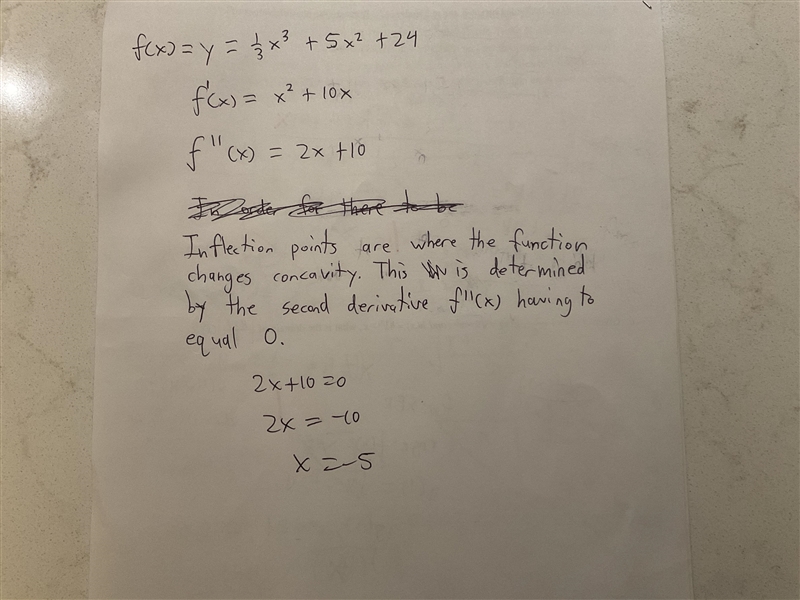 f(x) = y = 1/3 x³ + 5x² + 24
f'(x) = x² + 10x
f''(x) = 2x + 10
In order for there to be
Inflection points are where the function
changes concavity. This is determined
by the second derivative f''(x) having to
equal 0.
2x+10=0
2x = -10
x = -5